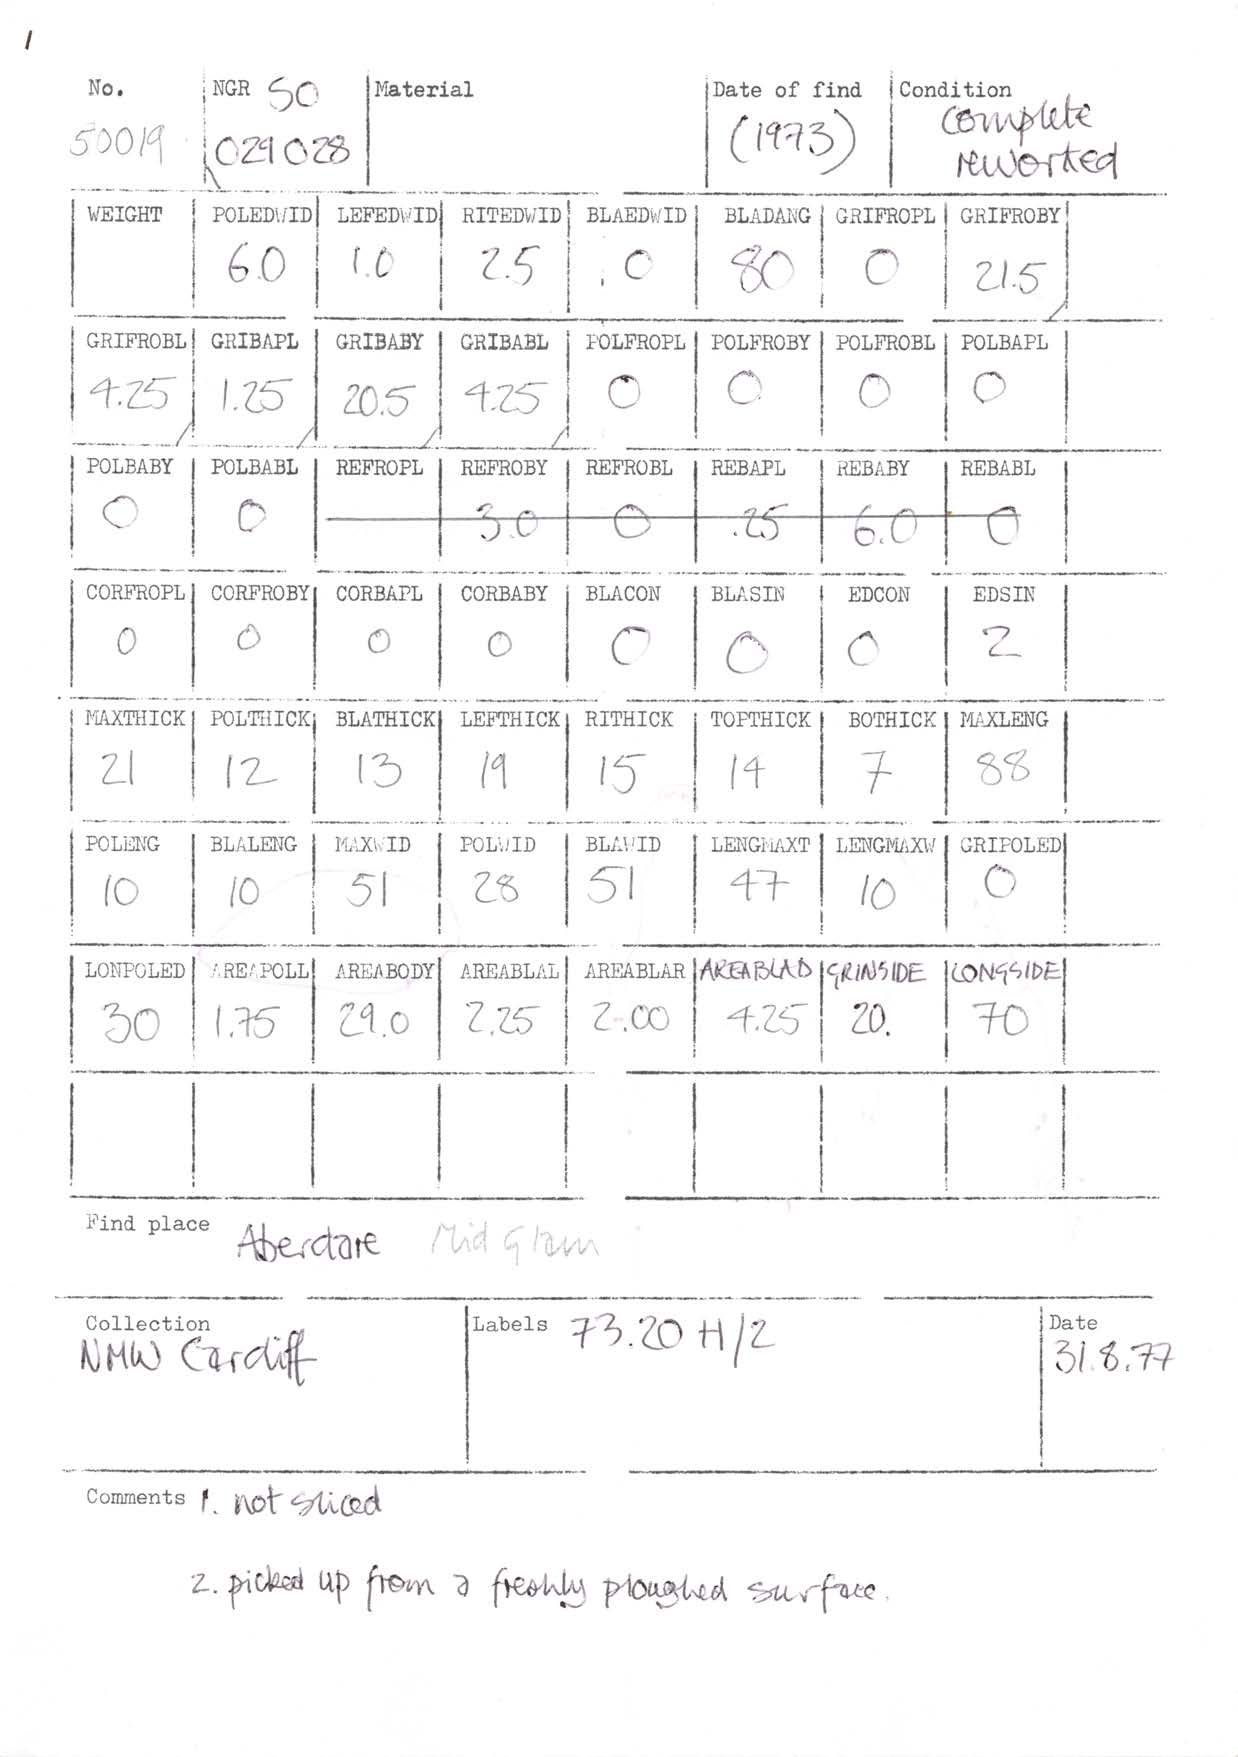 1
No. NGR SO Material Date of find Condition
50019 029028 (1973) complete reworked
WEIGHT POLEDWID LEFEDWID RITEDWID BLAEDWID BLADANG GRIFROPL GRIFROBY
6.0 1.0 2.5 0 80 0 21.5
GRIFROBL GRIBAPL GRIBABY GRIBABL POLFROPL POLFROBY POLFROBL POLBAPL
4.25 1.25 20.5 4.25 0 0 0 0
POLBABY POLBABL REFROPL REFROBY REFROBL REBAPL REBABY REBABL
0 0 3.0 0 .25 6.0 0
CORFROPL CORFROBY CORBAPL CORBABY BLACON BLASIN EDCON EDSIN
0 0 0 0 0 0 0 2
MAXTHICK POLTHICK BLATHICK LEFTHICK RITHICK TOPTHICK BOTHICK MAXLENG
21 12 13 19 15 14 7 88
POLENG BLALENG MAXWID POLWID BLAWID LENGMAXT LENGMAXW GRIPOLED
10 10 51 28 51 47 10 0
LONPOLED AREAPOLL AREABODY AREABLAL AREABLAR AREABLAD GRINSIDE LONGSIDE
30 1.75 29.0 2.25 2.00 4.25 20. 70
Find place Aberdare Mid Glam
Collection Labels 73.20 H/2 Date
NMW Cardiff 31.8.77
Comments 1. not sliced
2. picked up from a freshly ploughed surface.